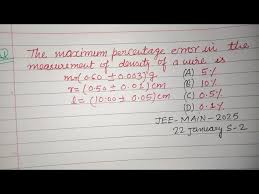 The maximum percentage error in the
measurement of density of a wire is
m=(0.60 ± 0.003)g
(A) 5%
r=(0.50 ± 0.01)cm
(B) 10%
l=(10.00 ± 0.05)cm.
(C) 0.5%
(D) 0.1%
JEE-MAIN-2025
22 january S-2